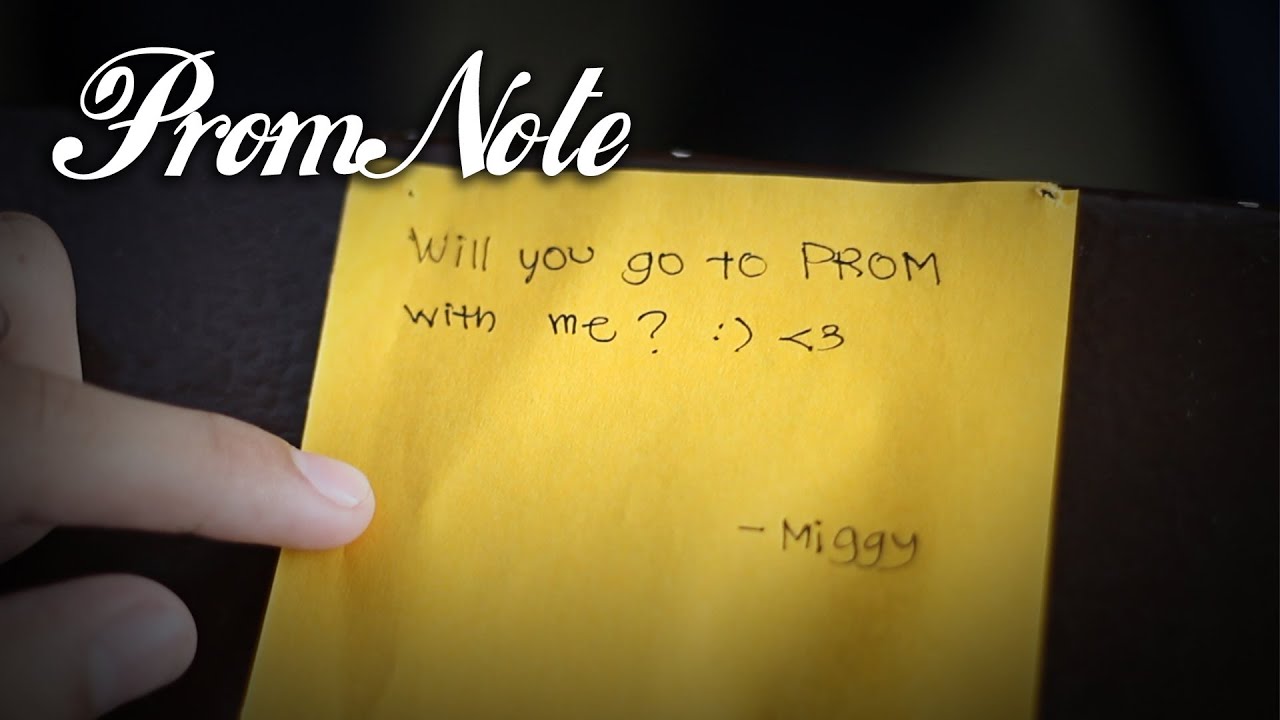 Prom Note
Will you go to PROM
with me? :) <3
- Miggy